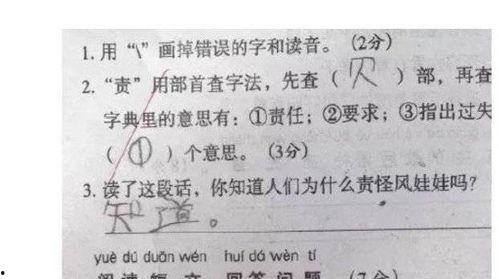 1. 用“\”画掉错误的字和读音。(2分)
2. “责”用部首查字法，先查（贝）部，再查
字典里的意思有：①责任；②要求；③指出过失
（①）个意思。(3分)
3. 读了这段话，你知道人们为什么责怪风娃娃吗？
知道。
yuè dú duǎn wén huí dá wèn tí
阅读短文，回答问题。(7分)